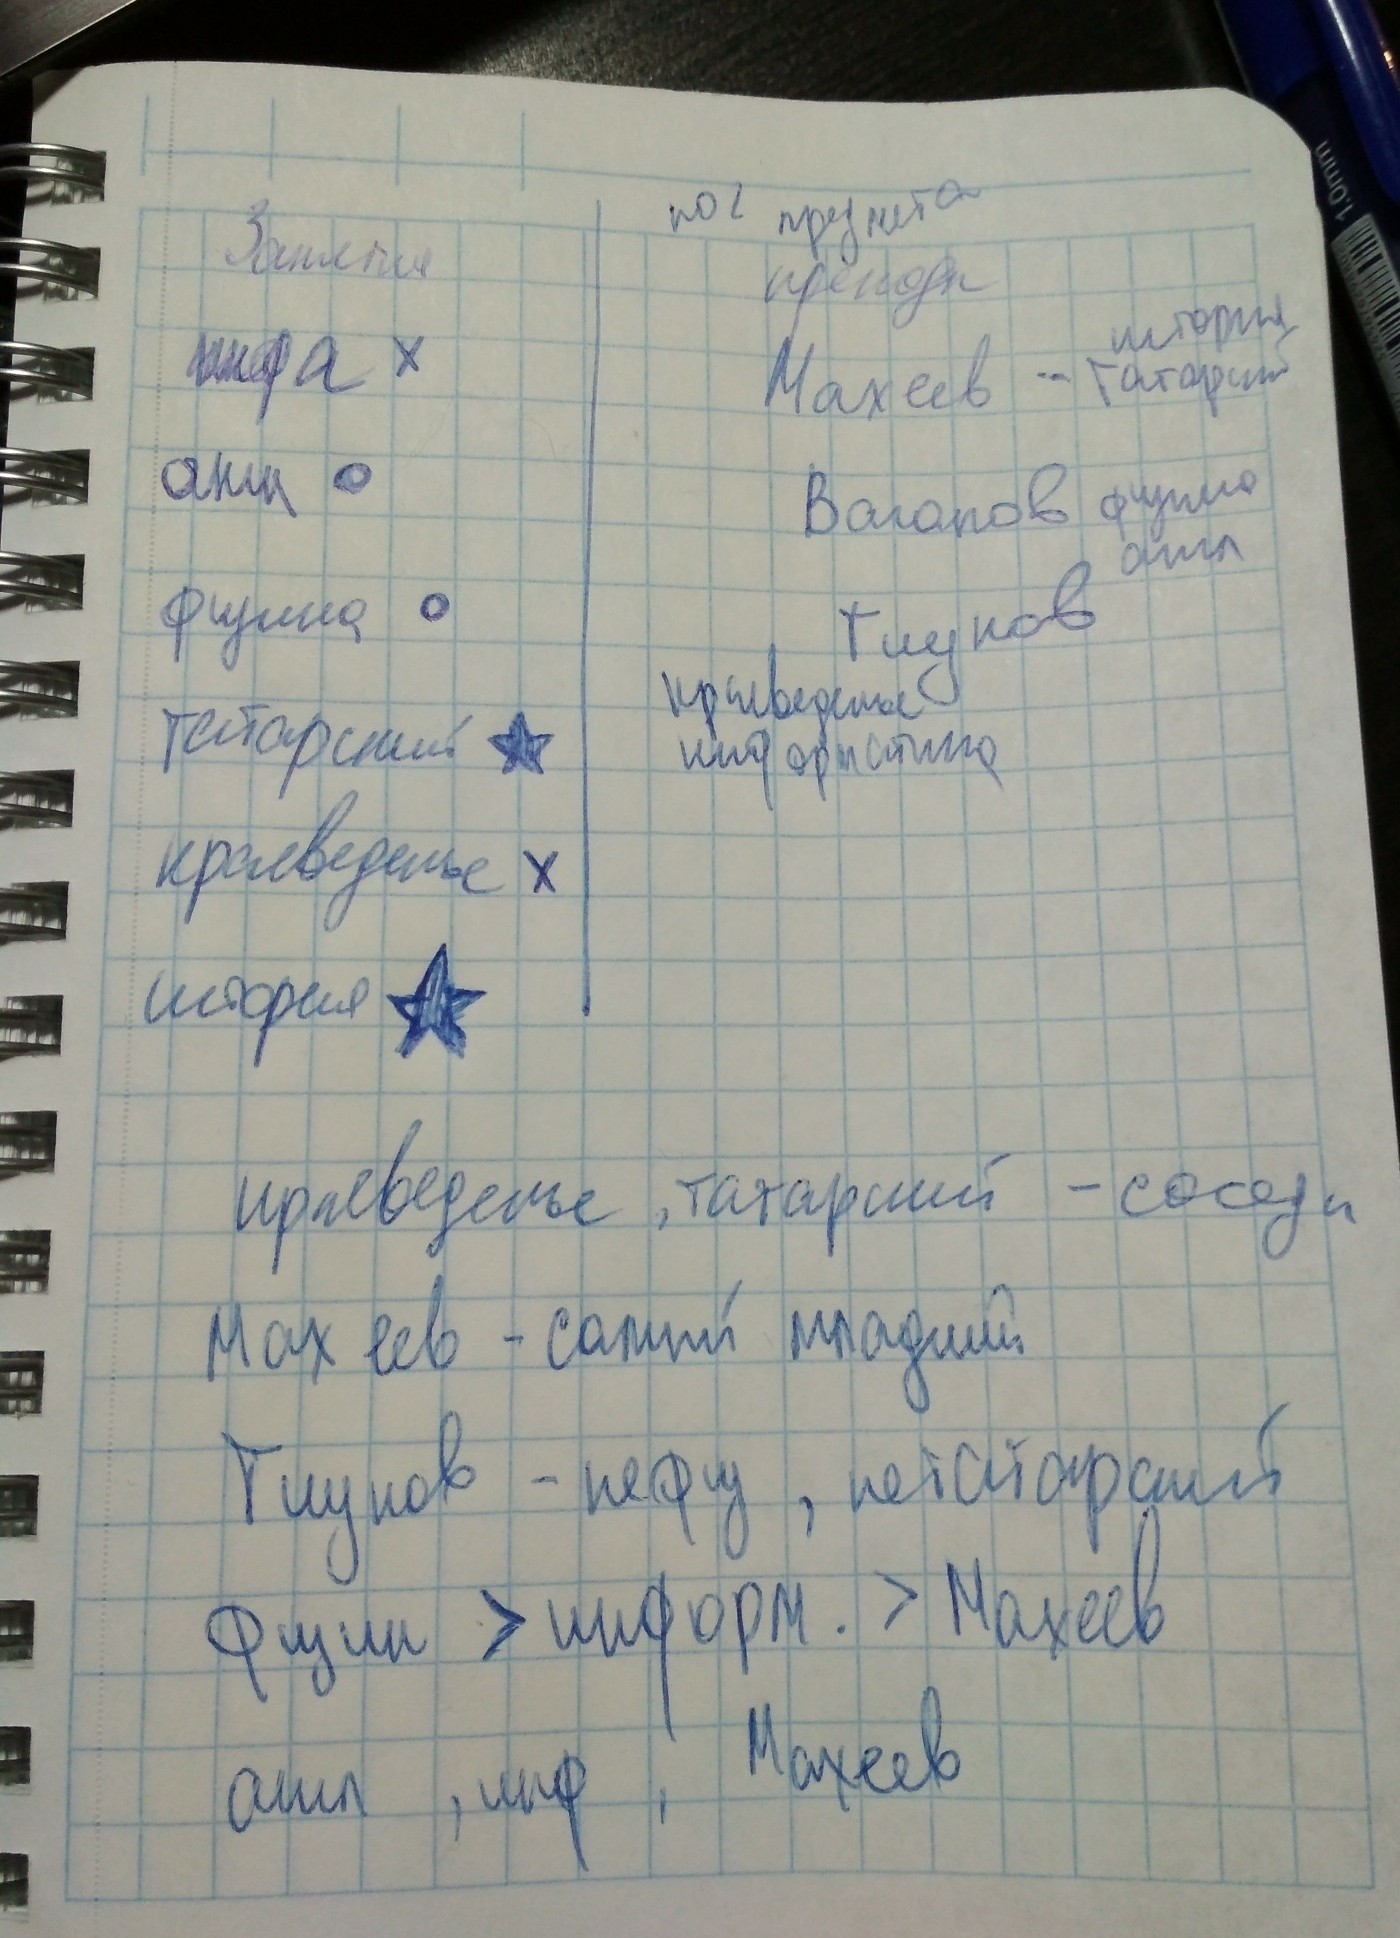 по 2 предмета
Занятия
преподы
инфа х
история
Махеев - татарский
англ
Вагапов физика
англ
физика
Тиунов
краеведенье
татарский
информатика
краеведенье х
история
краеведенье, татарский - соседи
Махеев - самый младший
Тиунов - не физ, не татарский
Физик > информ. > Махеев
англ, инф, Махеев
1.0mm